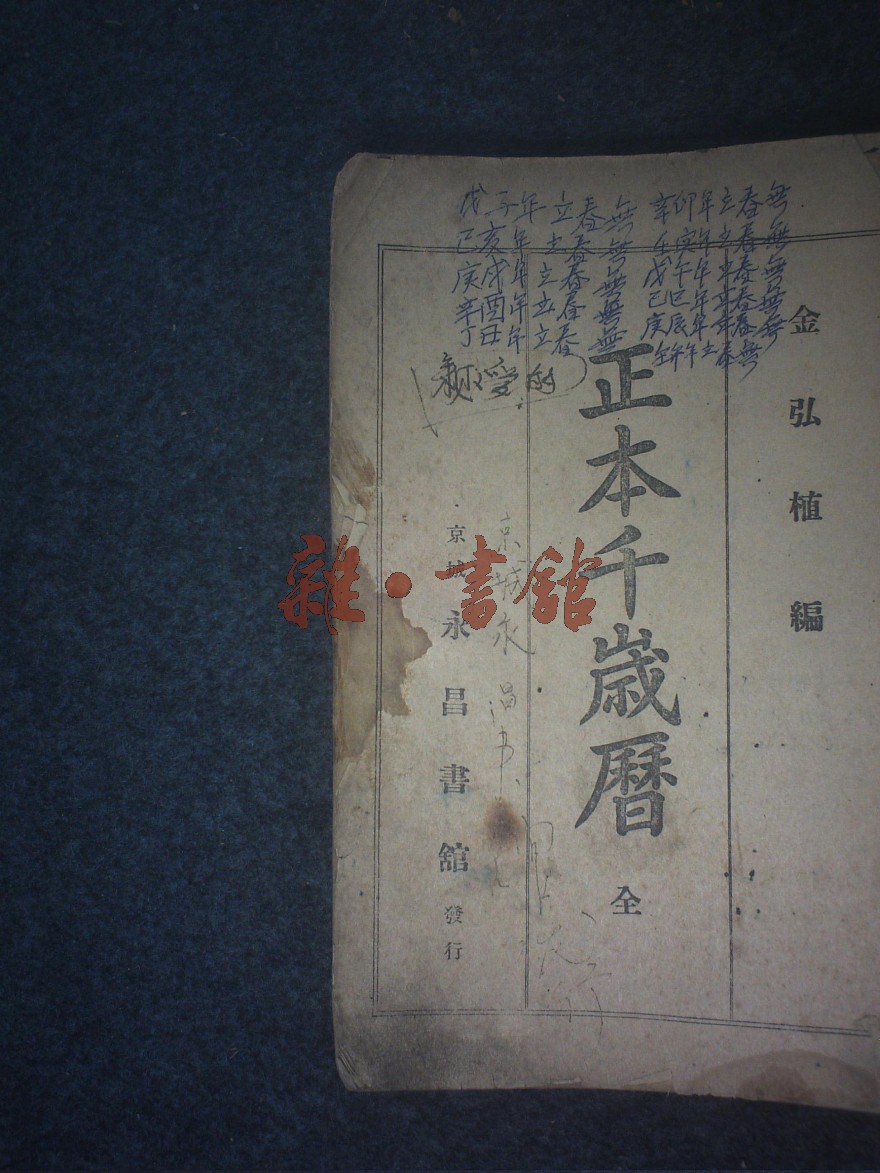 金弘植編
正本千歲曆 全
京城 永昌書舘 發行
戊子年立春無
己亥年立春無
庚戌年立春無
辛酉年立春無
丁丑年立春無
辛卯年立春無
壬寅年立春無
戊午年立春無
己巳年立春無
庚辰年立春無
午年立春無
受
京城永昌
雜·書舘